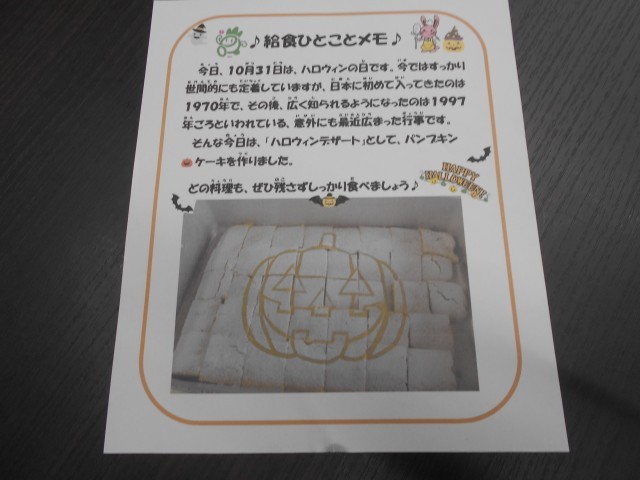 ♪給食ひとことメモ♪
今日、10月31日は、ハロウィンの日です。今ではすっかり
世間的にも定着していますが、日本に初めて入ってきたのは
1970年で、その後、広く知られるようになったのは1997
年ごろといわれている、意外にも最近広まった行事です。
そんな今日は、「ハロウィンデザート」として、パンプキン
ケーキを作りました。
どの料理も、ぜひ残さずしっかり食べましょう♪
HAPPY
HALLOWEEN!